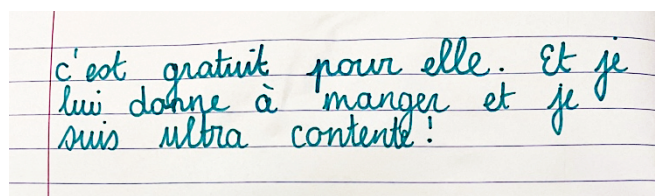 c'est gratuit pour elle. Et je
lui donne à manger et je
suis ultra contente!